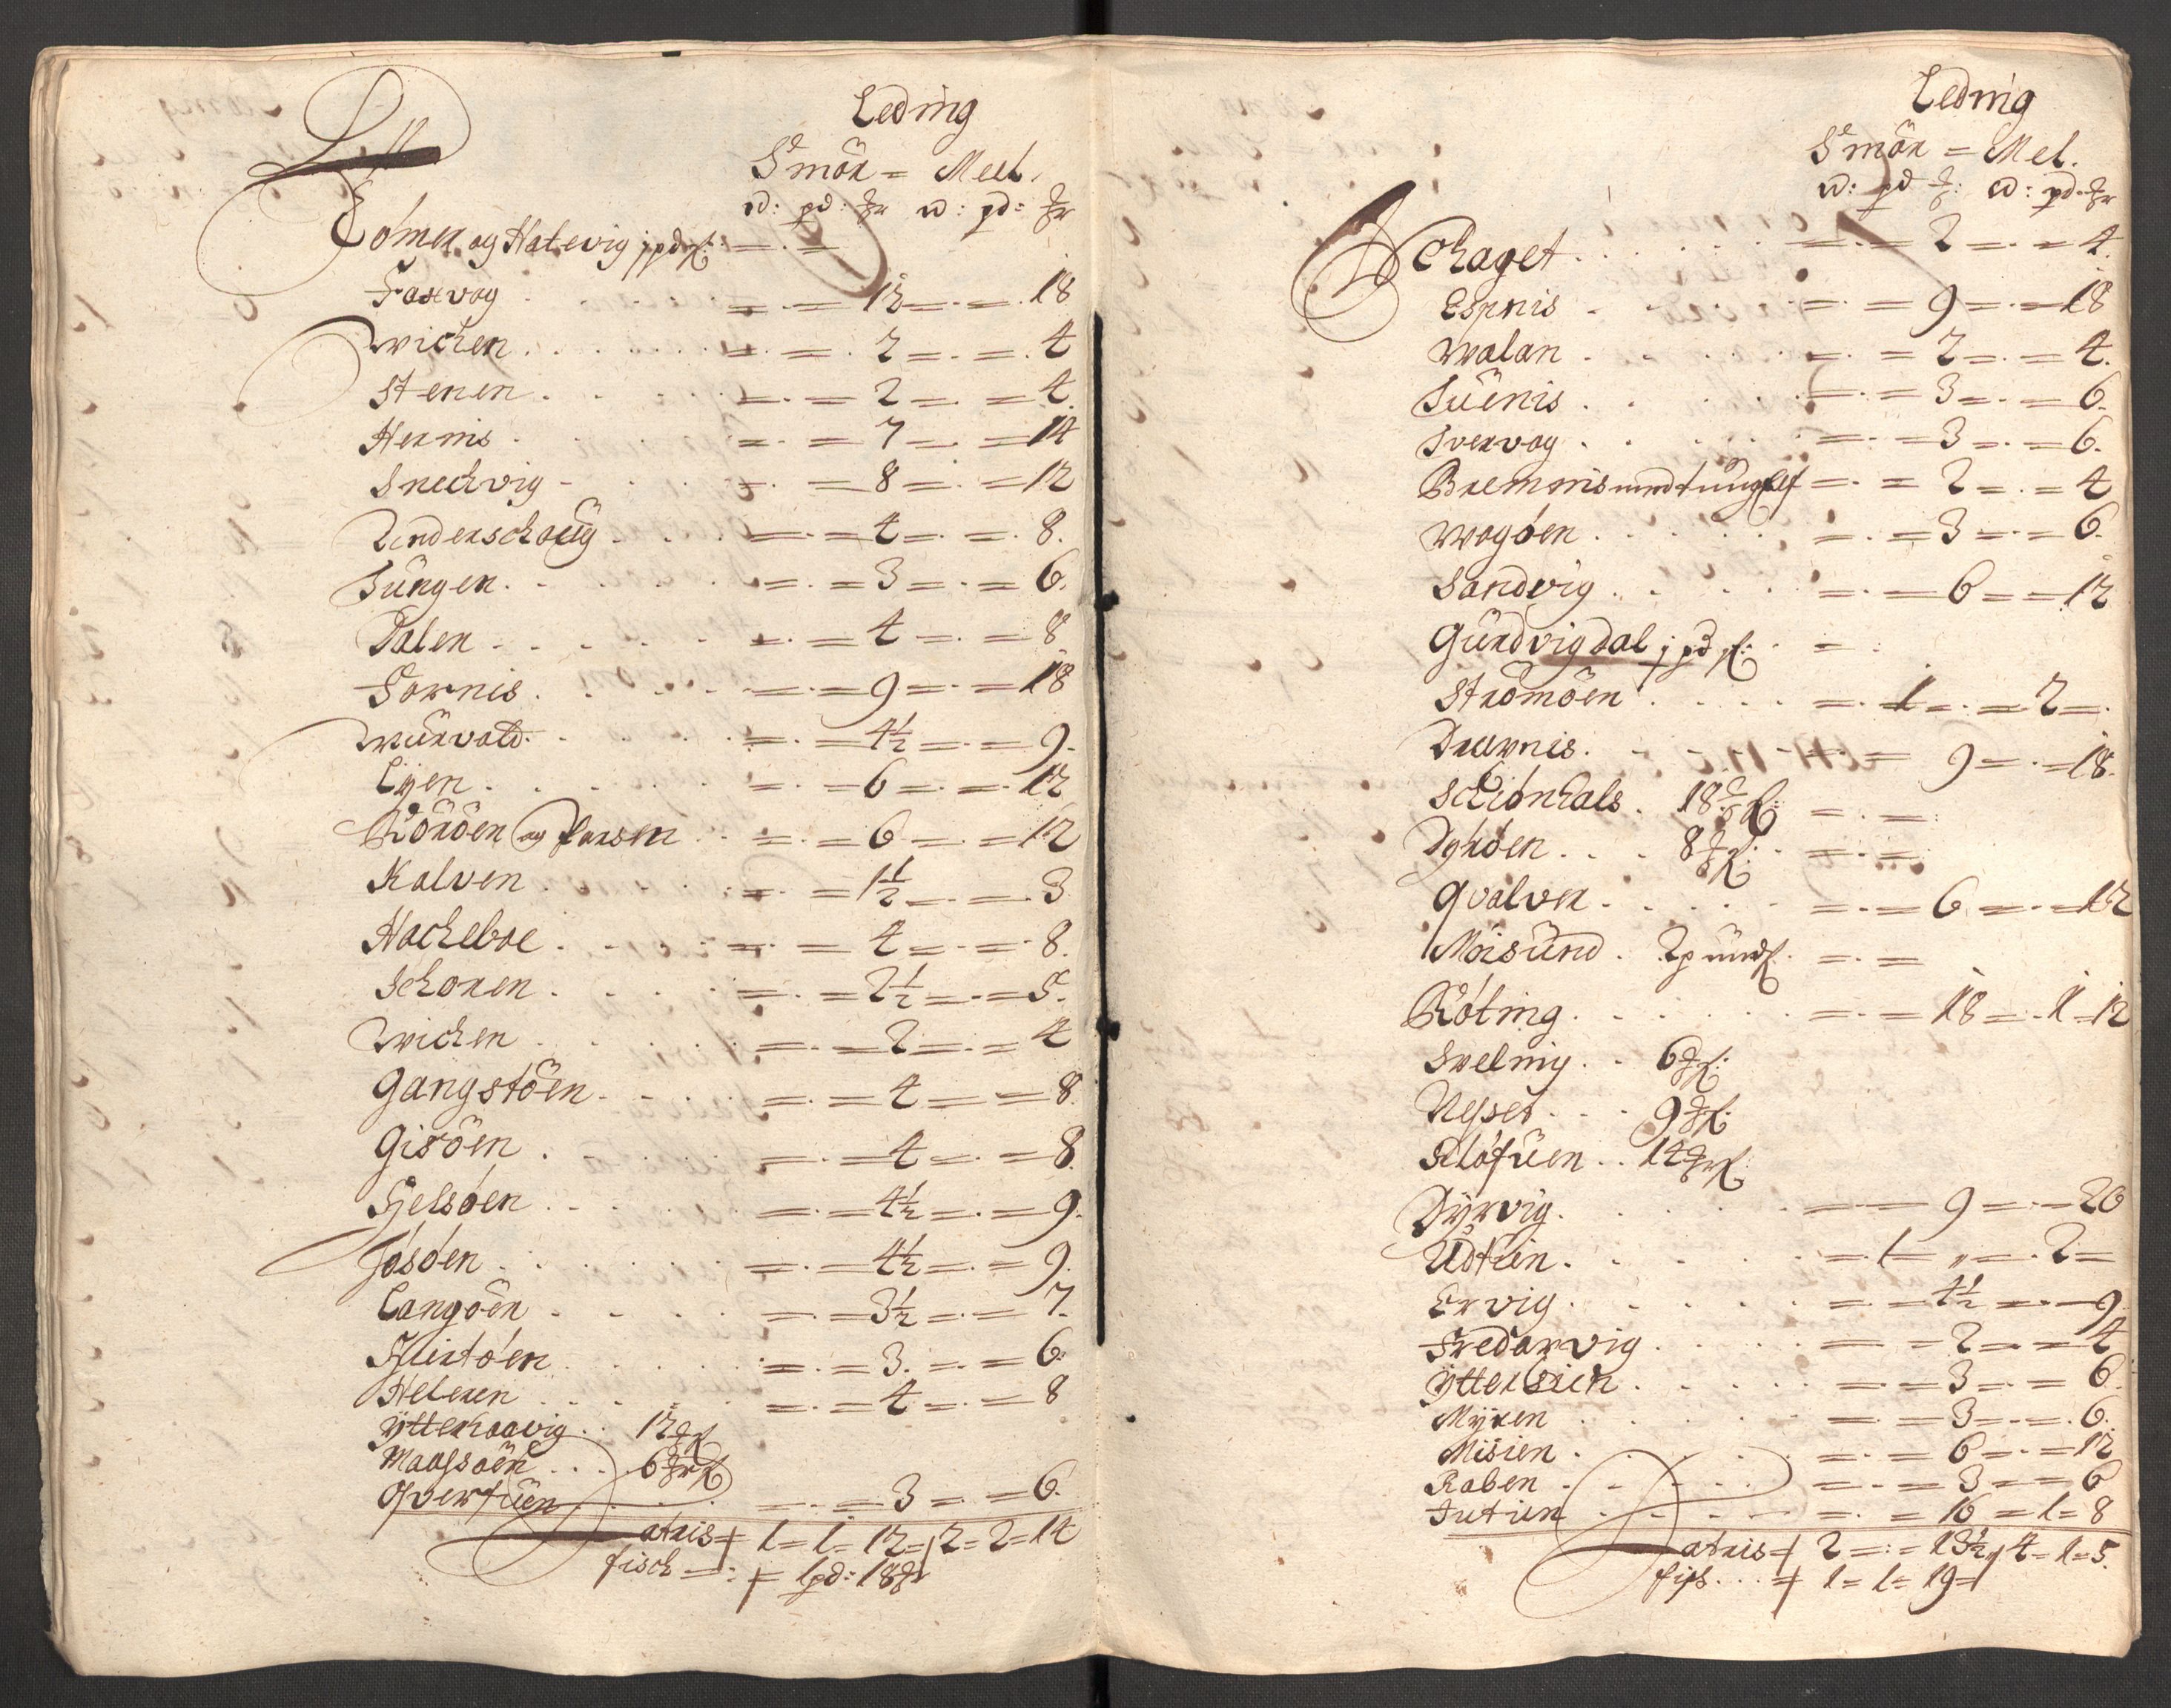 Leding
Smör = Meel.
w: pd: ℔r w: pd: ℔r
Tómer og Hatevig j pd f:
Faxvog = . = 13 = . = . 18
Wichen = . = . 2 = . = . 4
Stenen = . = 2 = . = 4
Hernis = . = 7 = . = 14
Snechvig = . = 8 = . = 12
Underschoug = . = 4 = . = . 8.
Sungen = . = 3 = . = 6.
Dalen = . = 4 = . = 8
Fornis = . = 9 = . = 18
Wurvold = . = 4½ = . = 9.
Lyen = . = 6 = . = 12
Röröen og = . = 6 = . = 12
Kalven = . = 1½ = . = 3
Hacheboe = . = 4 = . = 8.
Schoren = . = 2½ = . = 5.
Wichen = . = 2 = . = 4
Gangstöen = . = 4 = 8
Gisöen = . = 4 = . = 8.
Fjelsöen = . = 4½ = . = 9.
Jósóen = . = 4½ = . = 9.
Langöen = . = 3½ = . = 7.
Hiertóen = . = 3. = . = 6:
Heleren = . = 4 = . = 8
Ytterhaavig . . 12 ℔f
Maassöen . . . 6 ℔rf
Overfüen = . = 3 = . = 6.
Latris = 1 = 1 = 12 = 2 = 2 = 14
fisch = : = 1pd: 18℔r
Leding
Smör = Mel.
w: pd ℔: w: pd. ℔r
Schaget = . = 2 = . = 4.
Espnis = . = 9 = . = 18
Walan = . = 2 = . = 4.
Suenis = . = 3 = . = 6.
Svervog = . = 3 = . = 6.
Bremnis = . = 2 = . = 4
Wogóen = . = 3 = . = 6.
Sandvig = . = 6 = = 12
Gundvigdal j pd f:
Strömöen = . 1 = . = 2 = .
Duernis = . = 9 = . = 18.
Schiónhals . 18 ℔f: = . = :
Dyröen . . . 8 ℔f: = . = :
Qvalven = . = 6 = . = 12
Moisund . 2 pundf. = . =
Róting = . = 18 = . 1 = 12
Svelnig . . 6 ℔f:
Nesset . . . 9 ℔f:
Klófüen . . 14 ℔rf:
Dyrvig = = 9 = . = 20
Udtian = . 1 = „ = . 2 =
Ervig = . = 4½ = . = 9
Fredarvig = = 2 = = 4
Ytterbien = . = 3 = . = 6.
Myren = . = 3 = . = . 6.
Misien = . = 6 = . = 12
Raben = . = 3 = = 6
Tutien = . = 16 = 1 = 8
Latris = 2 = : = 13½ 4 = 1 = 5.
fiss . . . = 1 = 1 = 19 =